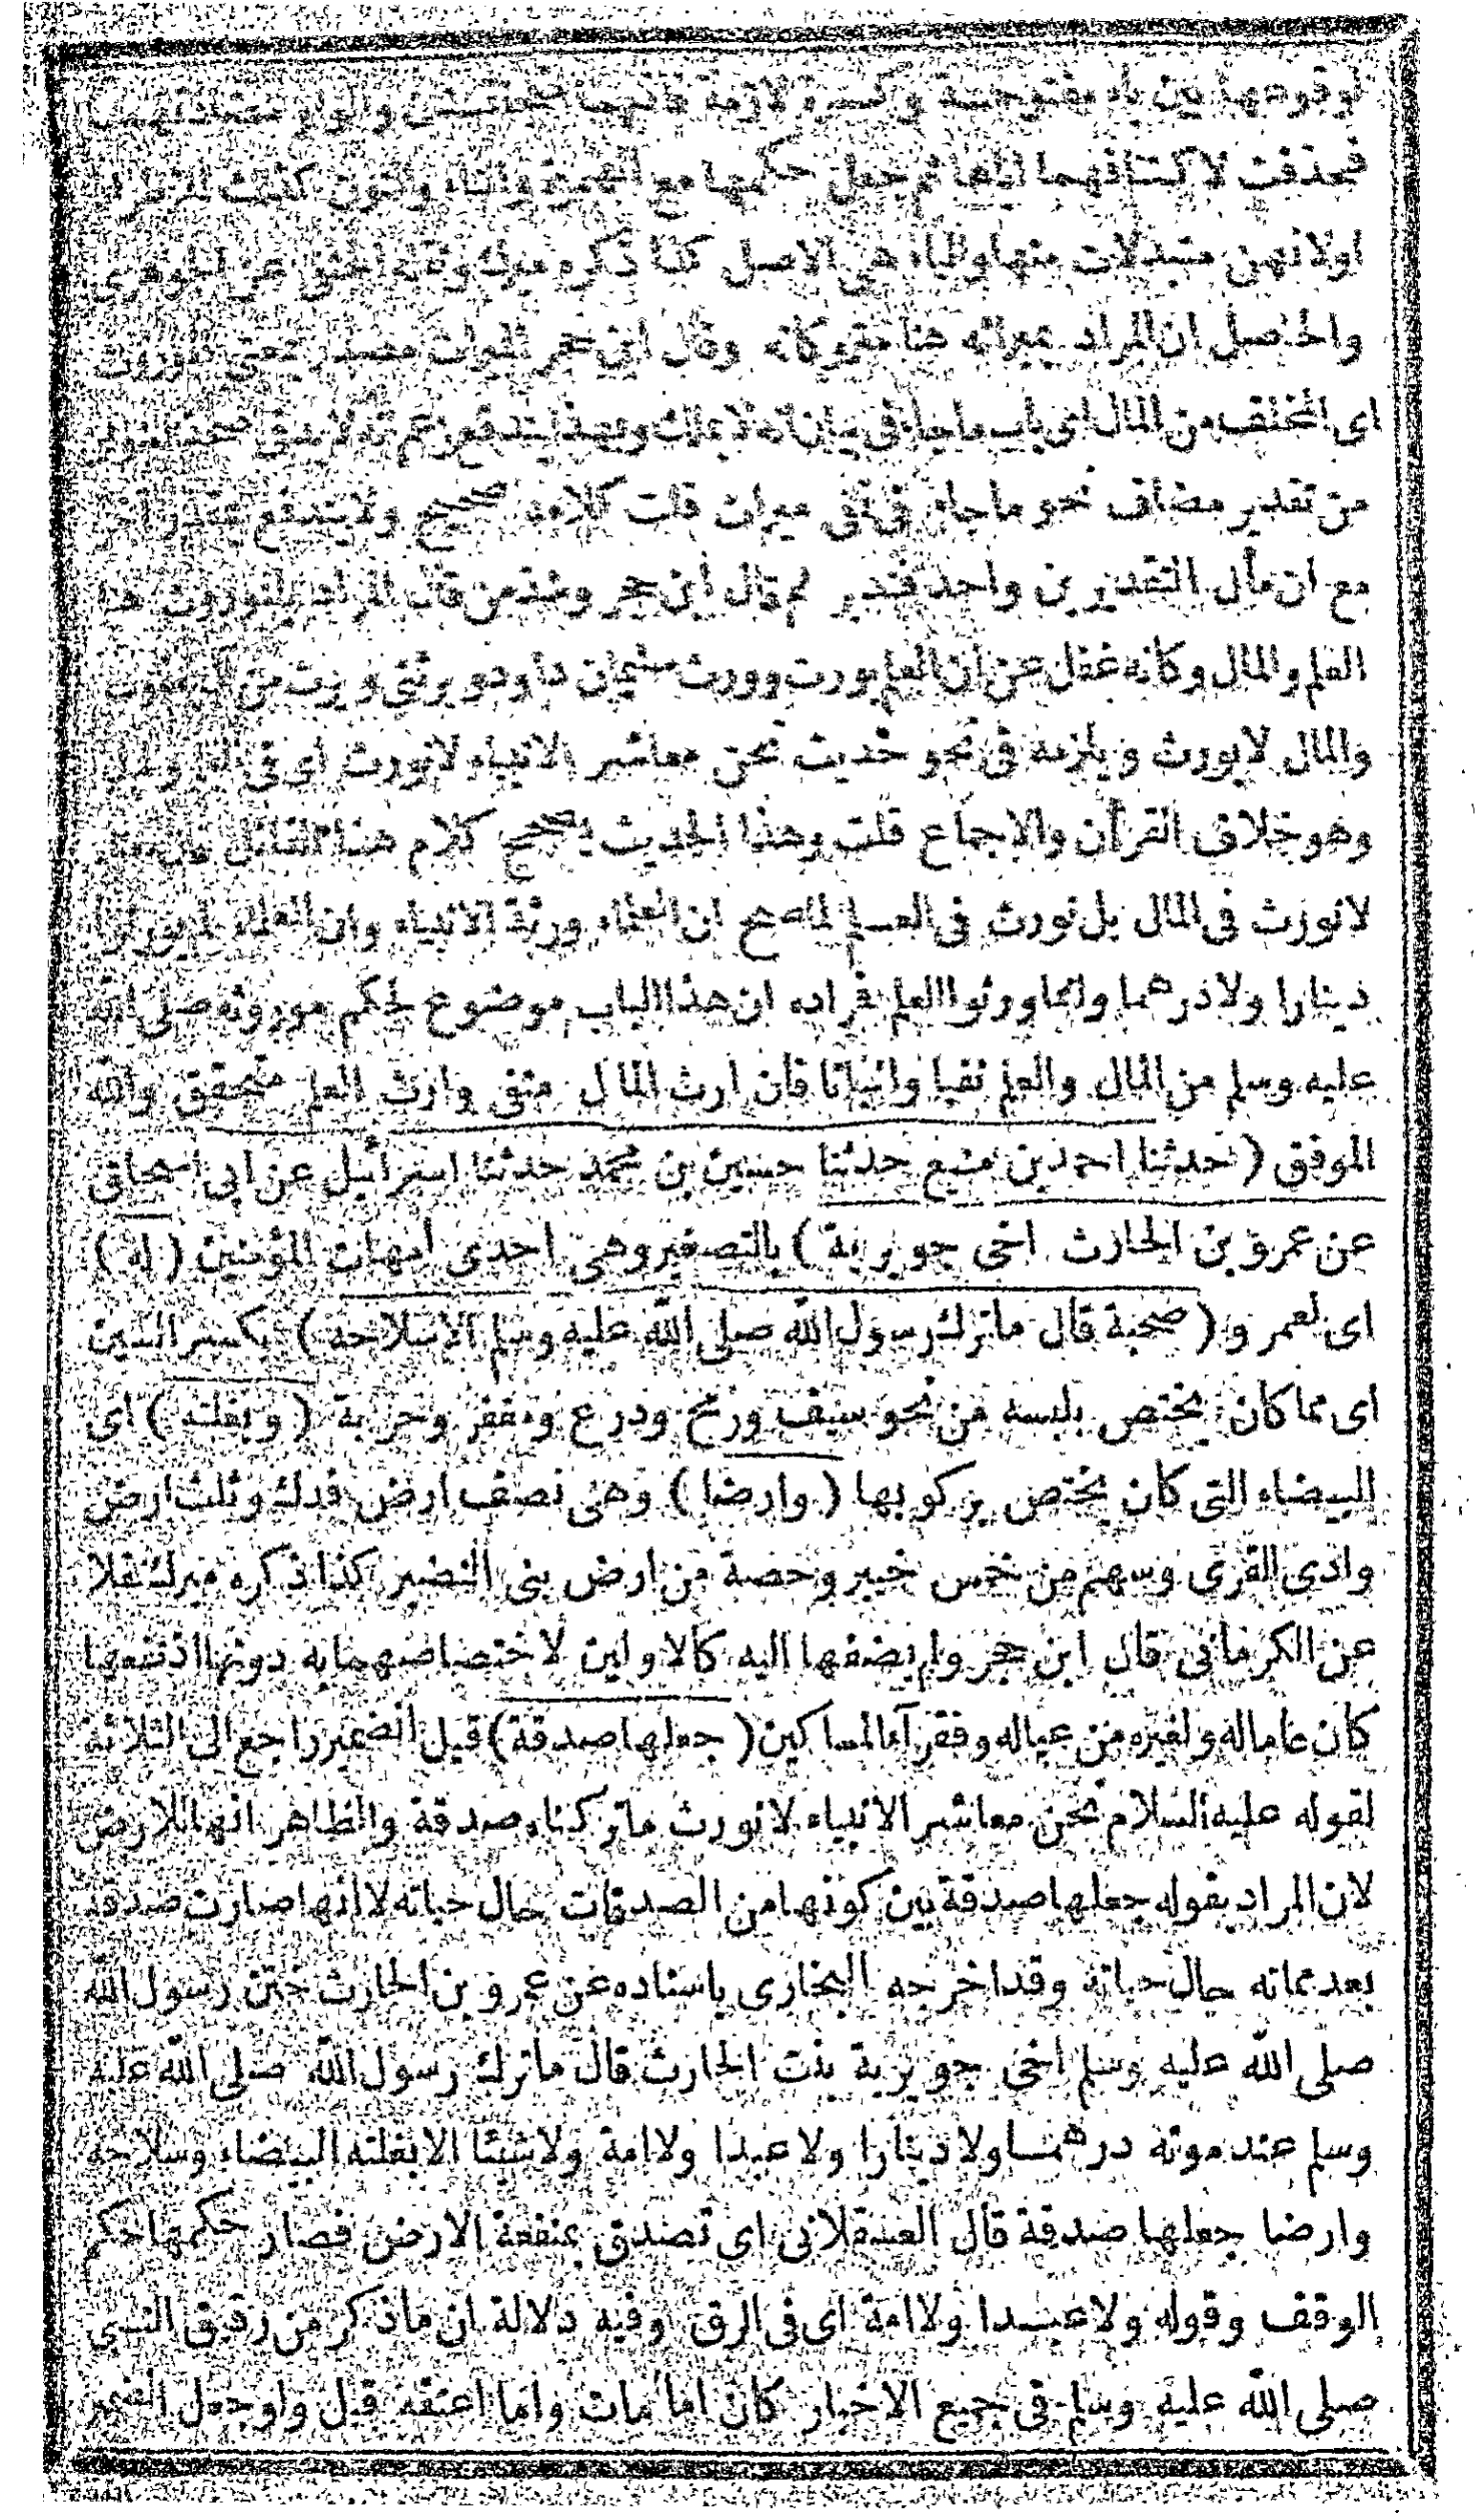 لوقوعها بين ياء مفتوحة وكسرة لازمة
فحذفت لاكتنافهما اياها ثم جعل حكمها مع الهمزة والتاء والنون كذلك
اولانهن مبدلات منها والياء هى الاصل كذا ذكره ميرك
والحاصل ان المراد بميراثه هنا متروكاته وقال ابن حجر الميراث مصدر بمعنى الموروث
اى المخلف من المال اى باب ماجاء فى بيان انه لا يملك وبهذا يندفع زعم انه لا بد فى صحة
من تقدير مضاف نحو ماجاء فى نفى ميراث قلت كلامه صحيح ولا يندفع
مع ان مأل التقديرين واحد فتدبر ثم قال ابن حجر وشذ من قال المراد بالموروث هنا
العلم والمال وكانه غفل عن ان العلم يورث وورث سليمان داود ويرثنى ويرث من آل يعقوب
والمال لا يورث ويلزمه فى نحو حديث نحن معاشر الانبياء لا نورث اى فى
وهو خلاف القرآن والاجماع قلت وهذا الحديث يصحح كلام هذا القائل
لا نورث فى المال بل نورث فى العلم لما صح ان العلماء ورثة الانبياء وان العلماء لم يورثوا
دينارا ولا درهما وانما ورثوا العلم فمراده ان هذا الباب موضوع لحكم موروثه صلى الله
عليه وسلم من المال والعلم نفيا واثباتا فان ارث المال منفى وارث العلم متحقق والله
الموفق (حدثنا احمد بن منيع حدثنا حسين بن محمد حدثنا اسرائيل عن ابى اسحاق
عن عمرو بن الحارث اخى جويرية) بالتصغير وهى احدى امهات المؤمنين (له)
اى لعمرو (صحبة قال ماترك رسول الله صلى الله عليه وسلم الاسلاحه) بكسر السين
اى مما كان يختص بلبسه من نحو سيف ورمح ودرع ومغفر وحربة (وبغلته) اى
البيضاء التى كان يختص بركوبها (وارضا) وهى نصف ارض فدك وثلث ارض
وادى القرى وسهم من خمس خيبر وحصة من ارض بنى النضير كذا ذكره ميرك نقلا
عن الكرمانى قال ابن حجر ولم يضفها اليه كالاولين لاختصاصهما به دونها اذ نفعها
كان عاما له ولغيره من عياله وفقرآء المساكين (جعلها صدقة) قيل الضمير راجع الى الثلاثة
لقوله عليه السلام نحن معاشر الانبياء لا نورث ما تركناه صدقة والظاهر انها للارض
لان المراد بقوله جعلها صدقة بين كونها من الصدقات حال حياته لا انها صارت صدقة
بعد مماته حال حياته وقد اخرجه البخارى باسناده عن عمرو بن الحارث ختن رسول الله
صلى الله عليه وسلم اخى جويرية بنت الحارث قال ماترك رسول الله صلى الله عليه
وسلم عند موته درهما ولا دينارا ولا عبدا ولا امة ولا شيئا الا بغلته البيضاء وسلاحه
وارضا جعلها صدقة قال العسقلانى اى تصدق بمنفعة الارض فصار حكمها حكم
الوقف وقوله ولا عبدا ولا امة اى فى الرق وفيه دلالة ان ماذكر من رقيق النبى
صلى الله عليه وسلم فى جميع الاخبار كان اما مات واما اعتقه قيل ولو جعل الضمير